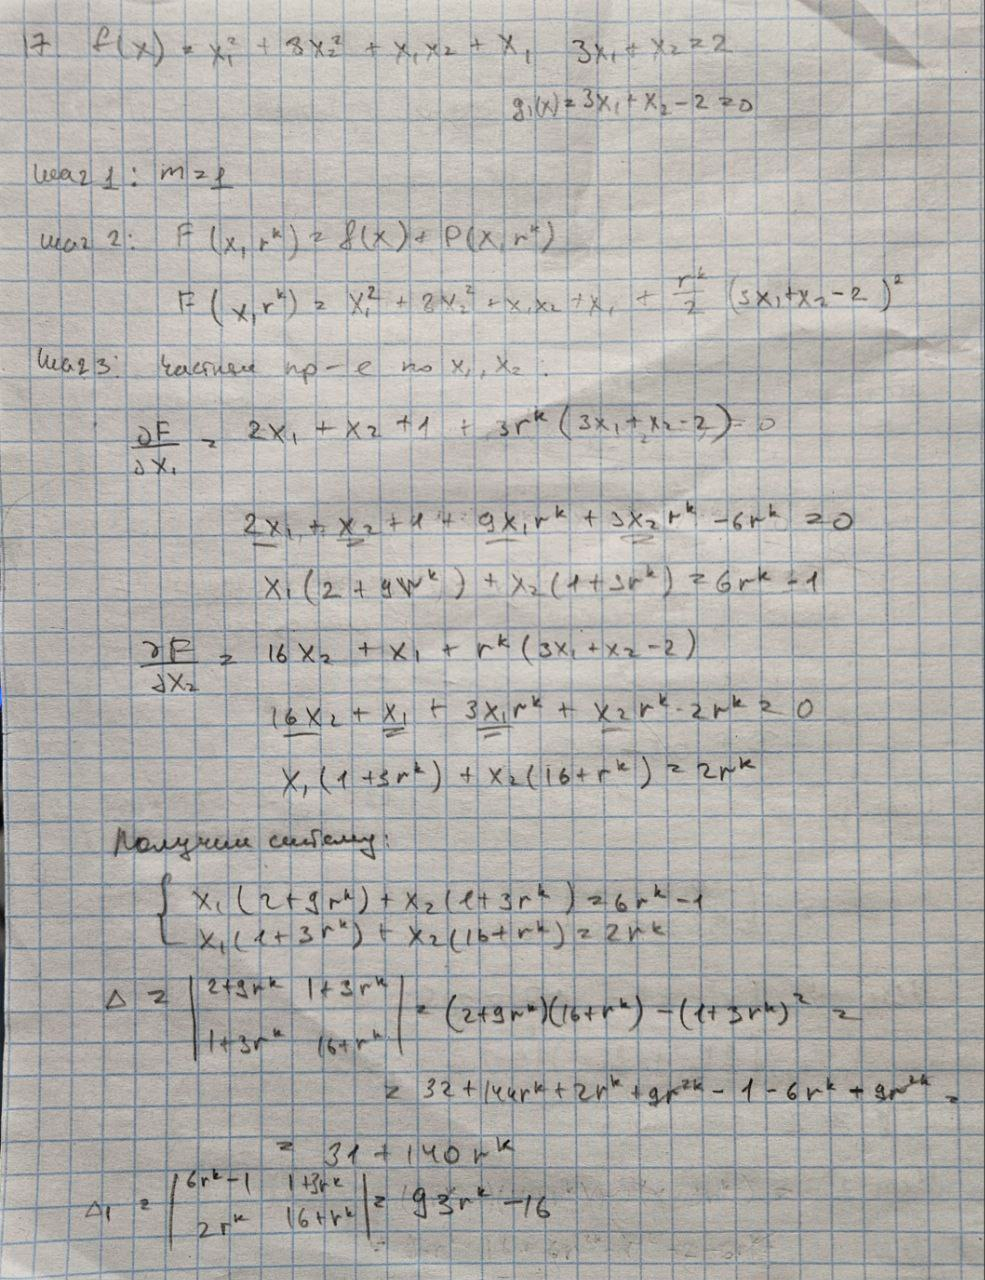 17. f(x) = x₁² + 8x₂² + x₁x₂ + x₁ 3x₁ + x₂ = 2
g₁(x) = 3x₁ + x₂ - 2 = 0
шаг 1: m = 1
шаг 2: F(x, rᵏ) = f(x) + P(x, rᵏ)
F(x, rᵏ) = x₁² + 8x₂² + x₁x₂ + x₁ + rᵏ/2 (3x₁ + x₂ - 2)²
шаг 3: частные пр-е по x₁, x₂.
∂F/∂x₁ = 2x₁ + x₂ + 1 + 3rᵏ(3x₁ + x₂ - 2) = 0
2x₁ + x₂ + 1 + 9x₁rᵏ + 3x₂rᵏ - 6rᵏ = 0
x₁(2 + 9rᵏ) + x₂(1 + 3rᵏ) = 6rᵏ - 1
∂F/∂x₂ = 16x₂ + x₁ + rᵏ(3x₁ + x₂ - 2)
16x₂ + x₁ + 3x₁rᵏ + x₂rᵏ - 2rᵏ = 0
x₁(1 + 3rᵏ) + x₂(16 + rᵏ) = 2rᵏ
Получим систему:
{ x₁(2 + 9rᵏ) + x₂(1 + 3rᵏ) = 6rᵏ - 1
x₁(1 + 3rᵏ) + x₂(16 + rᵏ) = 2rᵏ
Δ = | 2+9rᵏ 1+3rᵏ | = (2+9rᵏ)(16+rᵏ) - (1+3rᵏ)² =
| 1+3rᵏ 16+rᵏ |
= 32 + 144rᵏ + 2rᵏ + 9r²ᵏ - 1 - 6rᵏ + 9r²ᵏ =
= 31 + 140rᵏ
Δ₁ = | 6rᵏ-1 1+3rᵏ | = 93rᵏ - 16
| 2rᵏ 16+rᵏ |